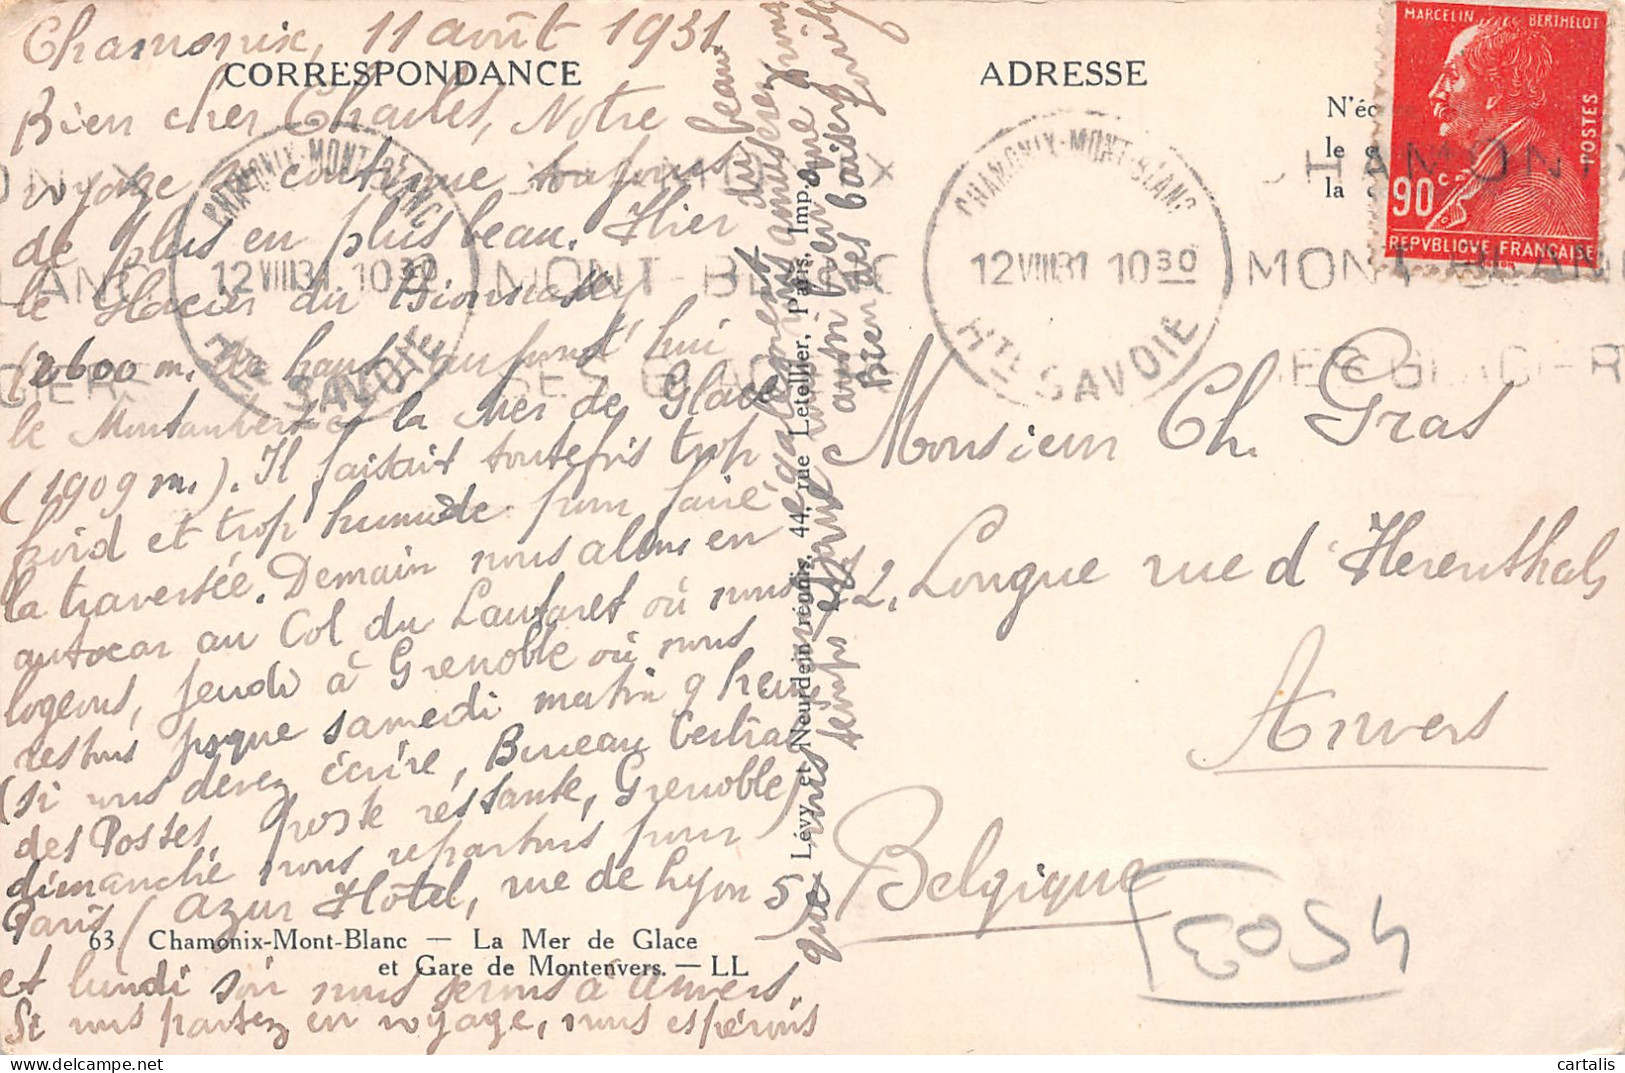 Chamonix, 11 août 1931.
CORRESPONDANCE
Bien cher Charles, Notre
voyage continue toujours
de plus en plus beau. Hier
le Glacier du Bionnassay
(2600 m. de haut) aujourd'hui
le Montanvert et la Mer de Glace
(1909 m.). Il faisait toutefois trop
froid et trop humide pour faire
la traversée. Demain nous allons en
autocar au Col du Lautaret où nous
logeons, jeudi à Grenoble où nous
restons jusque samedi matin 9 heures
(si vous devez écrire, Bureau Central
des Postes, poste restante, Grenoble)
dimanche nous repartons pour
Paris (Azur Hôtel, rue de Lyon 5)
63. Chamonix-Mont-Blanc — La Mer de Glace
et Gare de Montenvers. — LL
et lundi soir nous serons à Anvers.
Si vous partez en voyage, nous espérons
que vous vous amuserez
également
temps
aussi bien que
Bien des baisers
du beau
Lévy et Neurdein réunis, 44, rue Letellier, Paris, Imp.
ADRESSE
N'éc
le
la
MARCELIN BERTHELOT
POSTES
90c
REPVBLIQVE FRANÇAISE
CHAMONIX-MONT-BLANC
12 VIII 31 10 30
HTE SAVOIE
CHAMONIX-MONT-BLANC
12 VIII 31 10 30
HTE SAVOIE
CHAMONIX
MONT-BLANC
SES GLACIERS
Monsieur Ch. Gras
22, Longue rue d'Herenthals
Anvers
Belgique
E054
cartalis